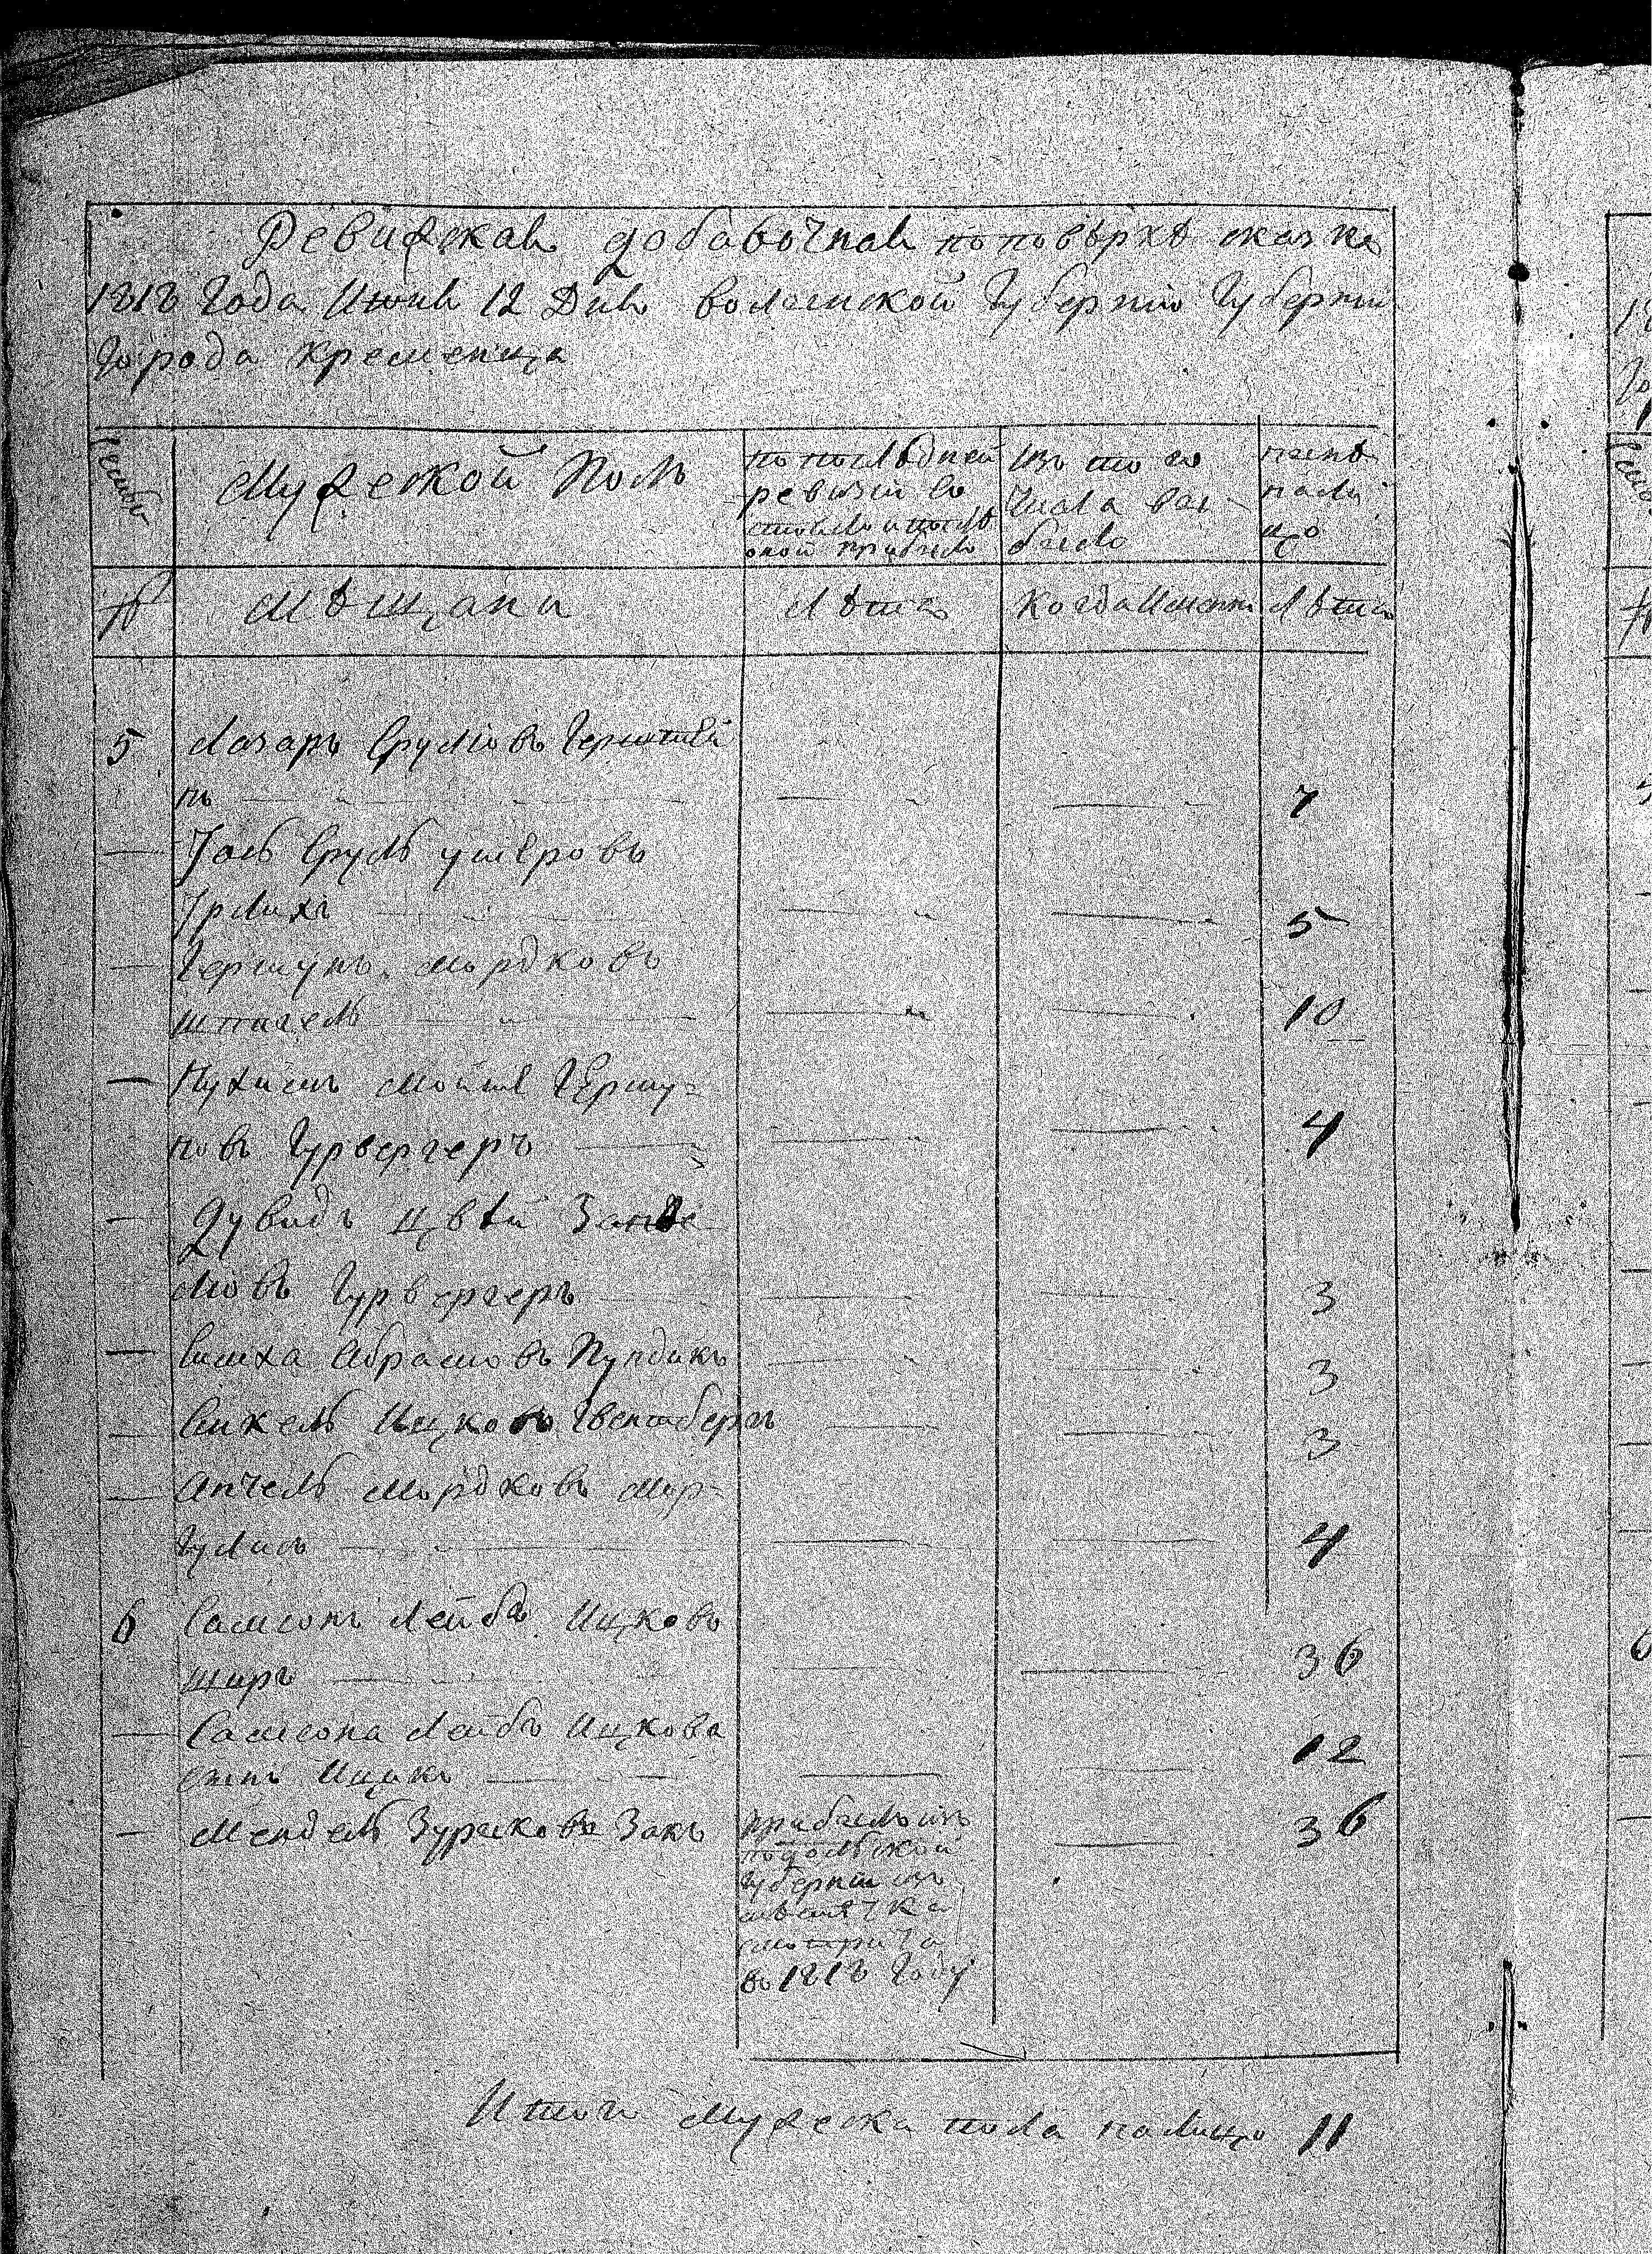 Ревижская добавочная поповѣркѣ сказка
1818 Года Июня 12 Дня волынской Губерніи Губерніи
Города Кременца
Мужеской Полъ
по последней
ревизіи со
стояло и после
оной прибыло
Изъ того
числа вы
было
ныне
нали
цо
№
Мѣщани
Лѣта
Когда Именно
Лѣта
5
Лазарь Срулiовъ Герштей
нъ
7
Іось Сруль ушеровъ
Ірлихъ
5
Гершунъ Мордковъ
шпигель
10
Нухимъ Мойше Гершу-
новъ Гурвергеръ
4
Дувидъ Цвей Занве
люовъ Гурвергеръ
3
Симха Абрамовъ Пундикъ
3
Янкель Ицковъ Гвентбергъ
3
Анчель Мордковъ Мар-
гулисъ
4
6
Самсонъ Лейбъ Ицковъ
ширъ
36
Самсона Лейбъ Ицкова
сынъ Ицикъ
12
Мендель Зурысковъ Закъ
36
прибылъ изъ
подольской
Губерніи изъ
мѣстечка
смотрича
въ 1818 Году
Итого Мужеска пола налицо 11